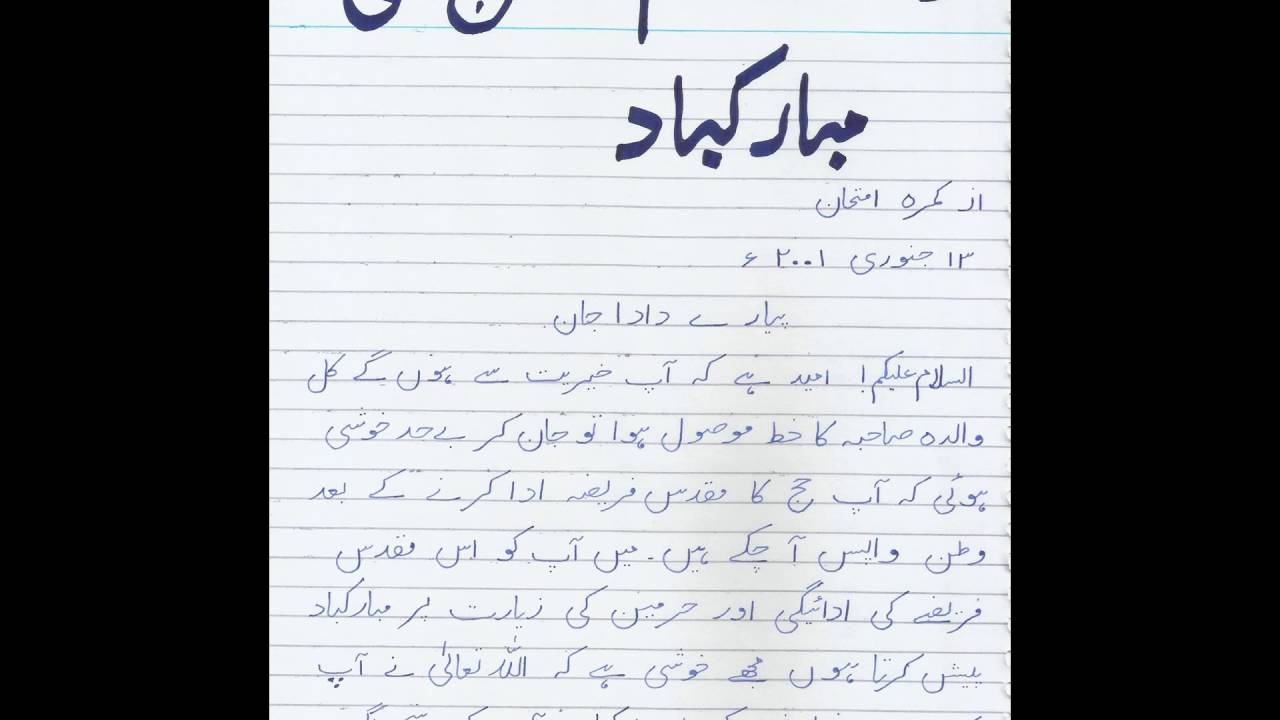 مبارکباد
از کمرہ امتحان
۱۳ جنوری ۲۰۰۱ ء
پیارے دادا جان
السلام علیکم! امید ہے کہ آپ خیریت سے ہوں گے کل
والدہ صاحبہ کا خط موصول ہوا تو جان کر بے حد خوشی
ہوئی کہ آپ حج کا مقدس فریضہ ادا کرنے کے بعد
وطن واپس آ چکے ہیں۔ میں آپ کو اس مقدس
فریضے کی ادائیگی اور حرمین کی زیارت پر مبارکباد
پیش کرتا ہوں مجھے خوشی ہے کہ اللہ تعالیٰ نے آپ